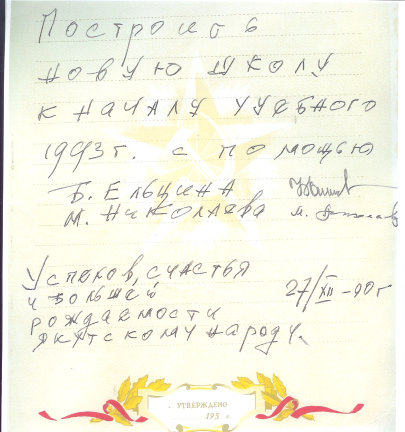 Построить
новую школу
к началу учебного
1993 г. с помощью
Б. Ельцина
М. Николаева
Успехов, счастья
и большей
рождаемости
якутскому народу.
27/XII – 90 г
УТВЕРЖДЕНО
195 г.